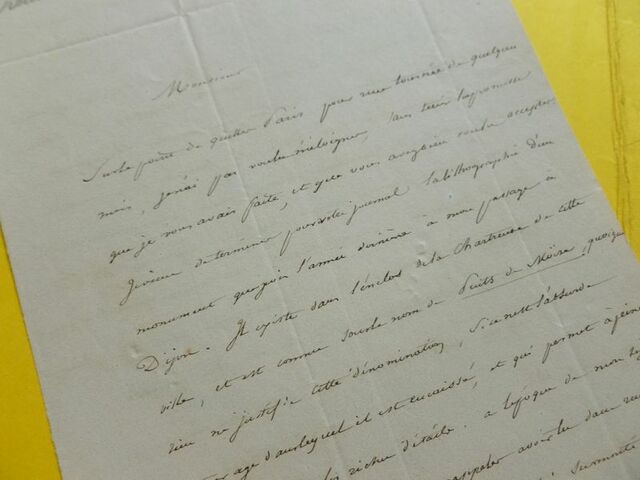 Monsieur
Sur le point de quitter Paris pour une tournée de quelques
mois, je n'ai pas voulu m'éloigner, sans tenir la promesse
que je vous avais faite, et que vous avez bien voulu accepter.
Je viens de terminer pour votre journal la lithographie d'un
monument que je vis l'année dernière à mon passage à
Dijon. Il existe dans l'enclos de la Chartreuse de cette
ville, et est connu sous le nom de Puits de Moïse, quoique
rien ne justifie cette dénomination, si ce n'est l'absurde
dans lequel il est encaissé, et qui permet à peine
les riches détails. à l'époque de mon
rappeler avoir lu dans
surmonté